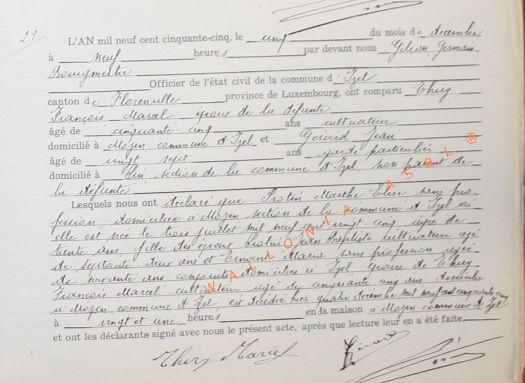 29
L'AN mil neuf cent cinquante-cinq, le cinq du mois de décembre
à neuf heures par devant nous Gilson Germain
Bourgmestre
Officier de l'état civil de la commune d'Izel
canton de Florenville province de Luxembourg, ont comparu Thiry
François Marcel époux de la défunte
âgé de cinquante-cinq ans cultivateur
domicilié à Moyen commune d'Izel et Géroud Jean
âgé de vingt-sept ans garde particulier
domicilié à section de la commune d'Izel non parent de
la défunte
Lesquels nous ont déclaré que Marthe Elise sans pro-
fession domiciliée à Moyen section de la commune d'Izel où
elle est née le trois juillet mil neuf cent vingt cinq âgée de
trente ans, fille des époux Jean Baptiste cultivateur âgé
de septante deux ans et Marie sans profession âgée
de soixante ans conjoints domiciliés à Izel, épouse de Thiry
François Marcel cultivateur âgé de cinquante cinq ans domicilié
à Moyen commune d'Izel est décédée hier quatre décembre mil neuf cent cinquante cinq
à vingt et une heures en la maison à Moyen commune d'Izel
et ont les déclarants signé avec nous le présent acte, après que lecture leur en a été faite
Thiry Marcel
WALLONIA ASBL ®